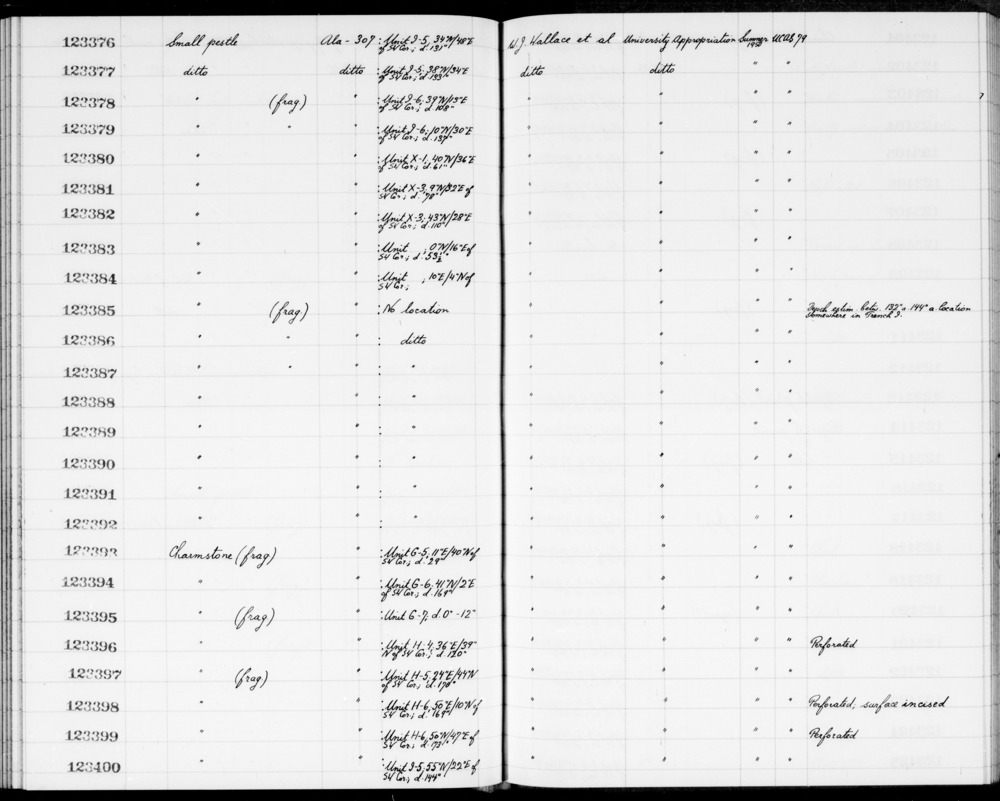 123376 Small pestle Ala - 307 : Unit I-5, 34"N/48"E of SW Cor.; d. 131" W.J. Wallace et al University Appropriation Summer 1950 UCAS 79
123377 ditto ditto : Unit I-5, 38"N/34"E of SW Cor.; d. 133" ditto ditto " "
123378 " (frag) " : Unit I-6, 39"N/13"E of SW Cor.; d. 108" " " " "
123379 " " " : Unit I-6, 10"N/30"E of SW Cor.; d. 137" " " " "
123380 " " : Unit X-1, 40"N/36"E of SW Cor.; d. 61" " " " "
123381 " " : Unit X-3, 9"N/32"E of SW Cor.; d. 78" " " " "
123382 " " : Unit X-3, 43"N/28"E of SW Cor.; d. 110" " " " "
123383 " " : Unit , 0"N/16"E of SW Cor.; d. 53½" " " " "
123384 " " : Unit , 10"E/4"N of SW Cor.; " " " "
123385 " (frag) " : No location " " " " betw. 132" a. 144" a location somewhere in Trench I.
123386 " " " : ditto " " " "
123387 " " " : " " " " "
123388 " " : " " " " "
123389 " " : " " " " "
123390 " " : " " " " "
123391 " " : " " " " "
123392 " " : " " " " "
123393 Charmstone (frag) " : Unit G-5, 11"E/40"N of SW Cor.; d. 29" " " " "
123394 " " : Unit G-6, 41"N/2"E of SW Cor.; d. 169" " " " "
123395 " (frag) " : Unit G-7, d. 0" - 12" " " " "
123396 " " : Unit H-4, 36"E/39" N of SW Cor.; d. 120" " " " " Perforated
123397 " (frag) " : Unit H-5, 24"E/44"N of SW Cor.; d. 170" " " " "
123398 " " : Unit H-6, 50"E/10"N of SW Cor.; d. 169" " " " " Perforated, surface incised
123399 " " : Unit H-6, 50"N/47"E of SW Cor.; d. 73" " " " " Perforated
123400 " " : Unit I-5, 55"N/22"E of SW Cor.; d. 144" " " " "